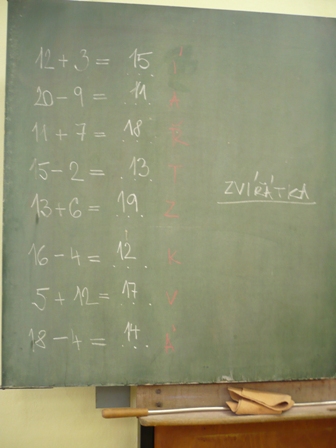 12 + 3 = 15
20 - 9 = 11 A
11 + 7 = 18
15 - 2 = 13 T
13 + 6 = 19 Z
16 - 4 = 12 K
5 + 12 = 17 V
18 - 4 = 14
ZVÍŘÁTKA